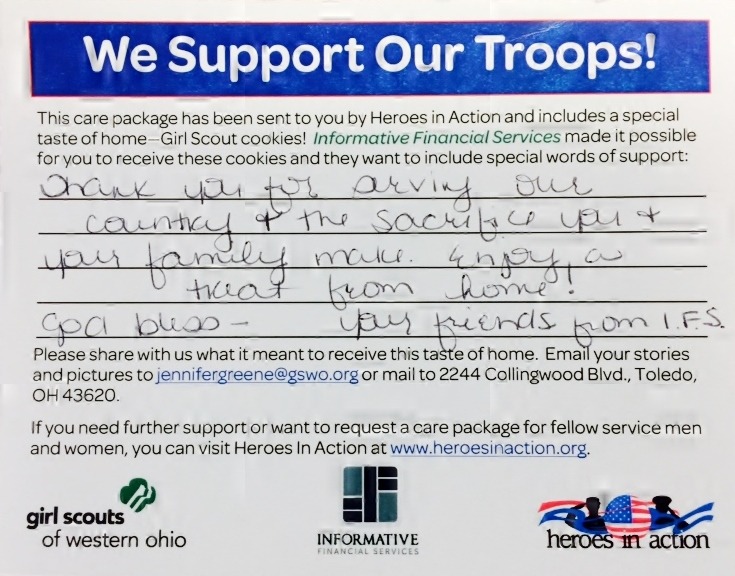 We Support Our Troops!
This care package has been sent to you by Heroes in Action and includes a special
taste of home—Girl Scout cookies! Informative Financial Services made it possible
for you to receive these cookies and they want to include special words of support:
Thank you for serving our
country & the sacrifice you &
your family make. Enjoy a
treat from home!
God bless – your friends from I.F.S.
Please share with us what it meant to receive this taste of home. Email your stories
and pictures to jennifergreene@gswo.org or mail to 2244 Collingwood Blvd., Toledo,
OH 43620.
If you need further support or want to request a care package for fellow service men
and women, you can visit Heroes In Action at www.heroesinaction.org.
girl scouts
of western ohio
INFORMATIVE
FINANCIAL SERVICES
heroes in action